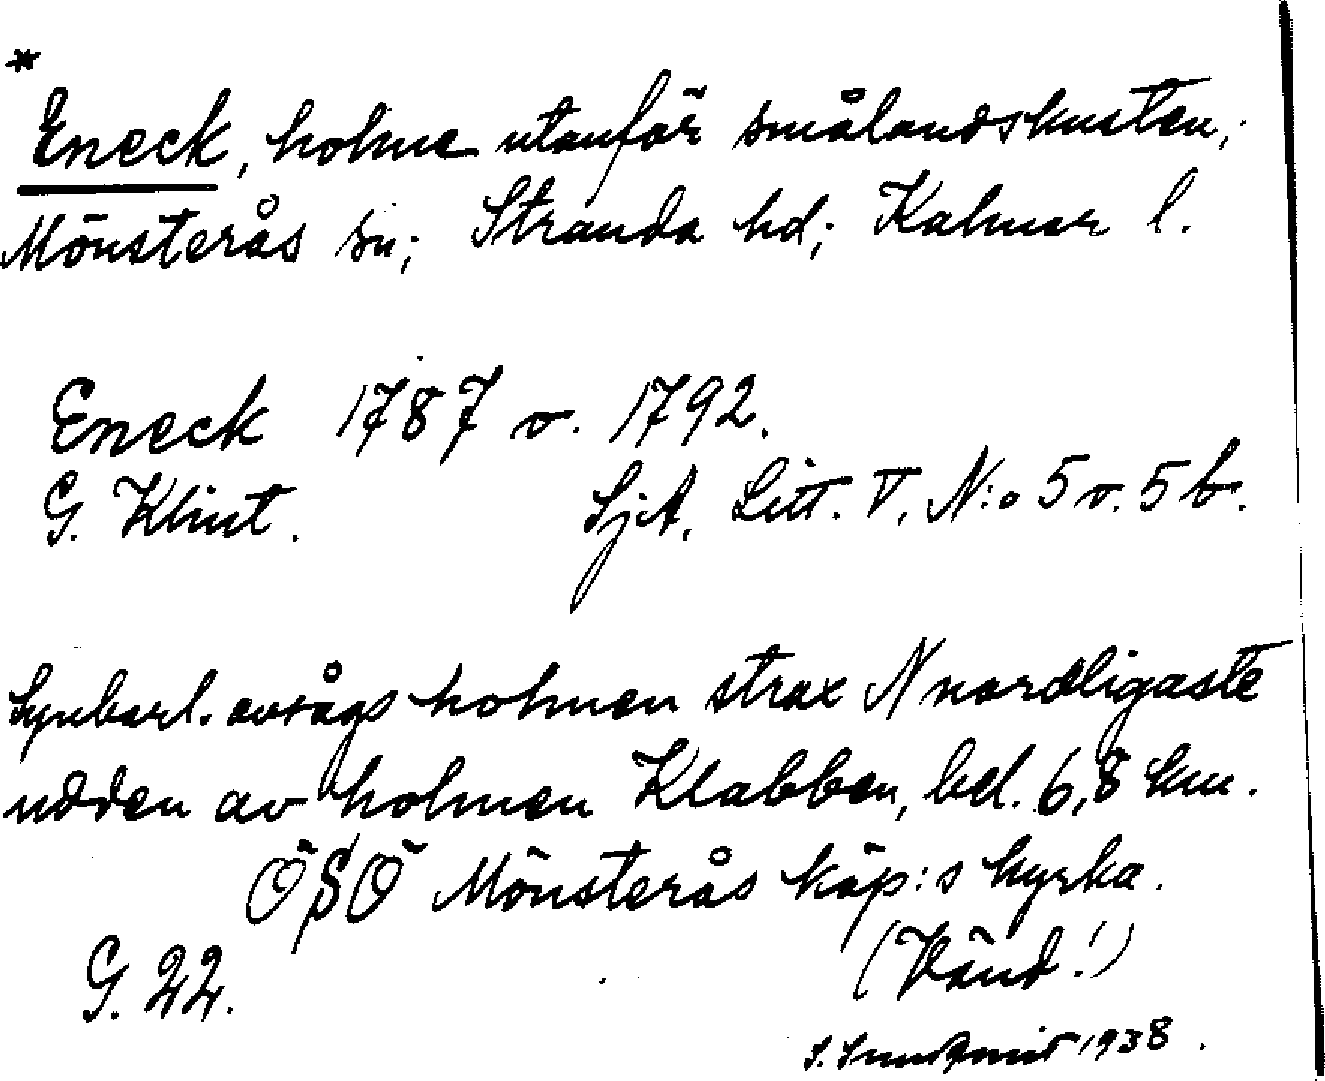 *
Eneck, holme utanför smålandskusten,
Mönsterås sn; Stranda hd; Kalmar l.
Eneck 1787 o. 1792.
G. Klint. SjA, Litt. V, N:o 5 o. 5 b.
Synbarl. avsågs holmen strax N nordligaste
udden av holmen Klabben, bel. 6,8 km.
ÖSÖ Mönsterås köp:s kyrka.
G. 22. (Vänd!)
S. 1938.